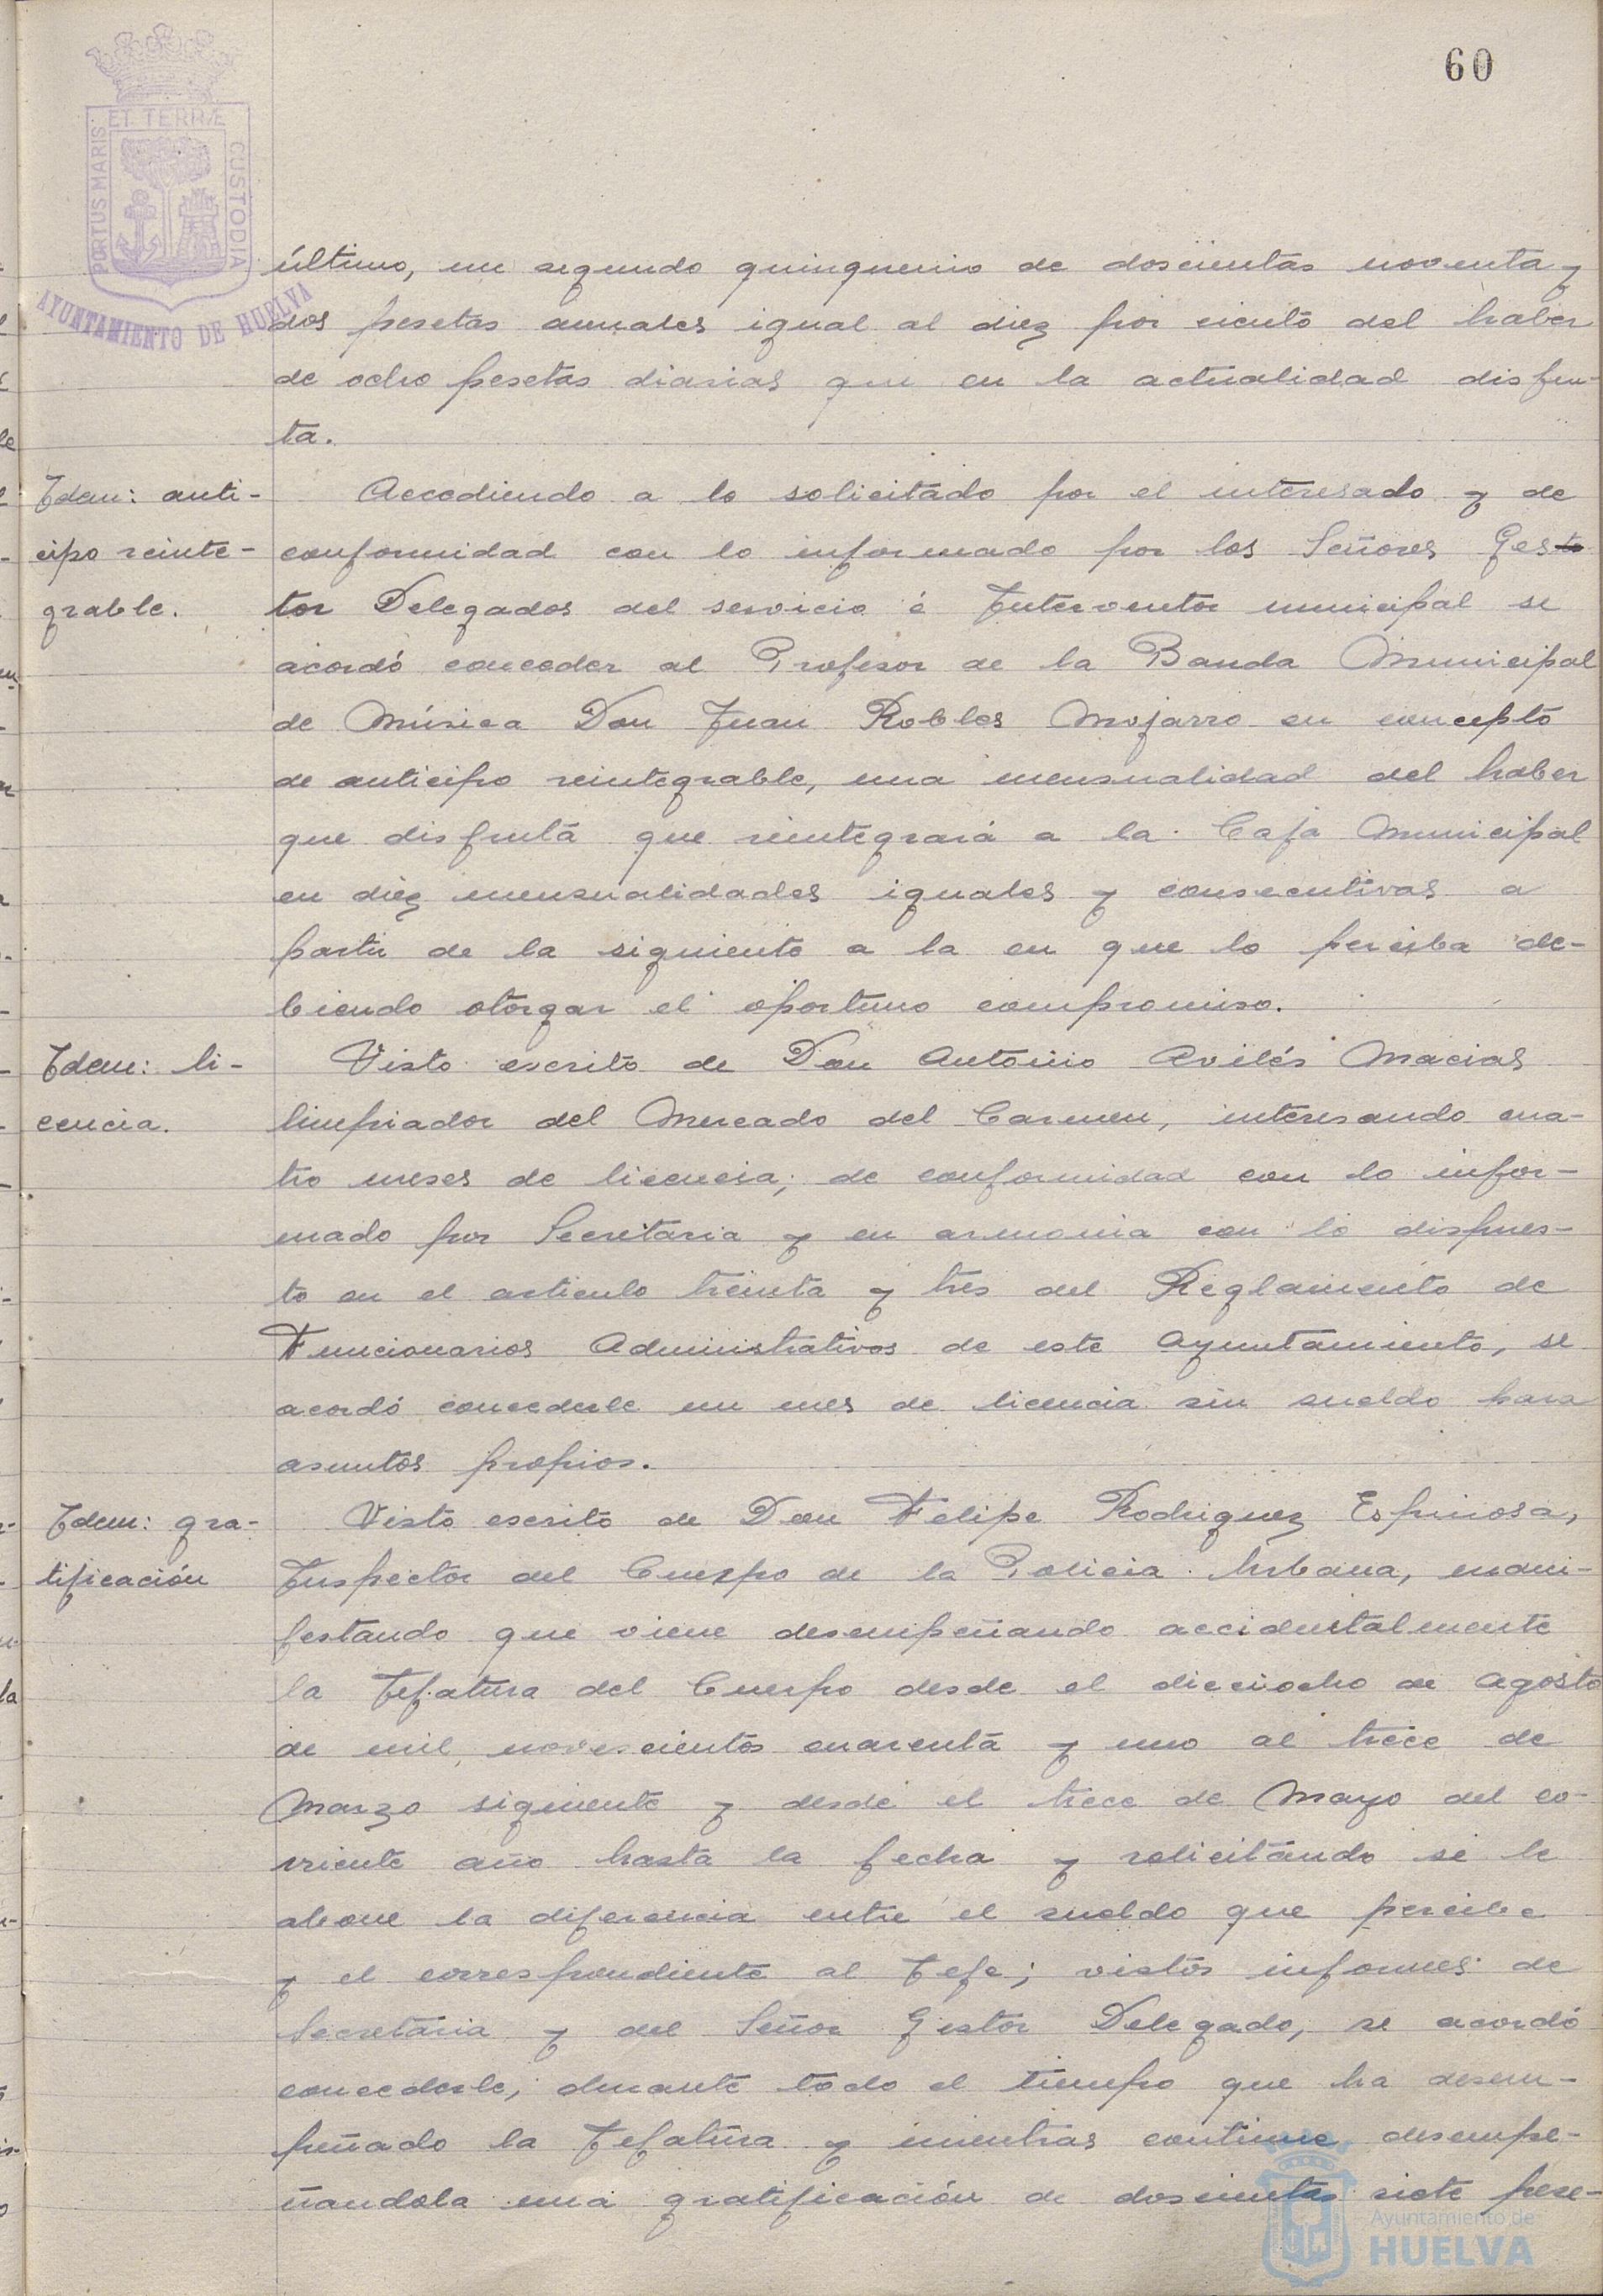 60
PORTUS MARIS ET TERRÆ CUSTODIA
AYUNTAMIENTO DE HUELVA
último, un segundo quinquenio de doscientas noventa y
dos pesetas anuales igual al diez por ciento del haber
de ocho pesetas diarias que en la actualidad disfru-
ta.
Idem: anti-
cipo reinte-
grable.
Accediendo a lo solicitado por el interesado y de
conformidad con lo informado por los Señores Ges
tor Delegados del servicio é Interventor municipal se
acordó conceder al Profesor de la Banda Municipal
de Música Don Juan Robles Mojarro en concepto
de anticipo reintegrable, una mensualidad del haber
que disfruta que reintegrará a la Caja Municipal
en diez mensualidades iguales y consecutivas a
partir de la siguiente a la en que lo perciba de-
biendo otorgar el oportuno compromiso.
Idem: li-
cencia.
Visto escrito de Don Antonio Avilés Macias
limpiador del Mercado del Carmen, interesando cua-
tro meses de licencia; de conformidad con lo infor-
mado por Secretaria y en armonia con lo dispues-
to en el articulo treinta y tres del Reglamento de
Funcionarios Administrativos de este Ayuntamiento, se
acordó concederle un mes de licencia sin sueldo para
asuntos propios.
Idem: gra-
tificación
Visto escrito de Don Felipe Rodriguez Espinosa,
Inspector del Cuerpo de la Policia Urbana, mani-
festando que viene desempeñando accidentalmente
la Jefatura del Cuerpo desde el dieciocho de Agosto
de mil novecientos cuarenta y uno al trece de
Marzo siguiente y desde el trece de Mayo del co-
rriente año hasta la fecha y solicitando se le
abone la diferencia entre el sueldo que percibe
y el correspondiente al Jefe; vistos informes de
Secretaria y del Señor Gestor Delegado, se acordó
concederle, durante todo el tiempo que ha desem-
peñado la Jefatura y mientras continue desempe-
ñandola una gratificación de doscientas siete pese-
Ayuntamiento de
HUELVA